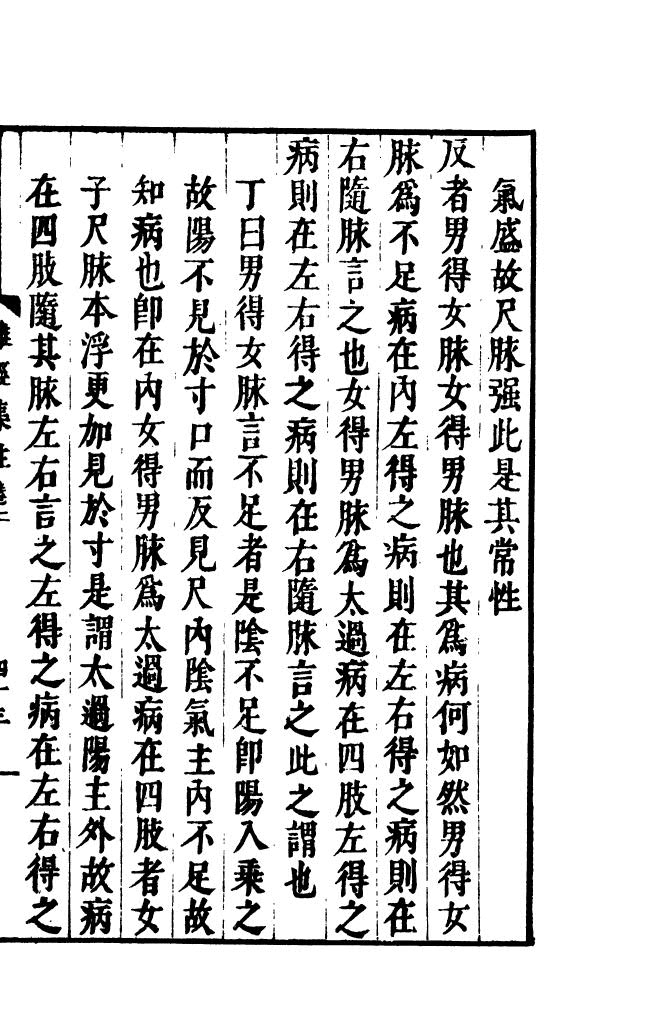 氣盛故尺脉强此是其常性
反者男得女脉女得男脉也其爲病何如然男得女
脉爲不足病在內左得之病則在左右得之病則在
右隨脉言之也女得男脉爲太過病在四肢左得之
病則在左右得之病則在右隨脉言之此之謂也
丁曰男得女脉言不足者是陰不足卽陽入乗之
故陽不見於寸口而反見尺內陰氣主內不足故
知病也卽在內女得男脉爲太過病在四肢者女
子尺脉本浮更加見於寸是謂太過陽主外故病
在四肢隨其脉左右言之左得之病在左右得之
難經集註卷二
四十三